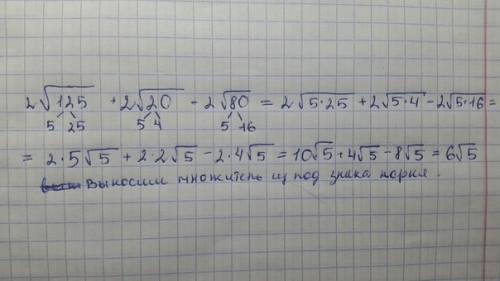 2√125 + 2√20 - 2√80 = 2√5·25 + 2√5·4 - 2√5·16 =
5 25 5 4 5 16
= 2·5√5 + 2·2√5 - 2·4√5 = 10√5 + 4√5 - 8√5 = 6√5
Выносим множитель из под знака корня.